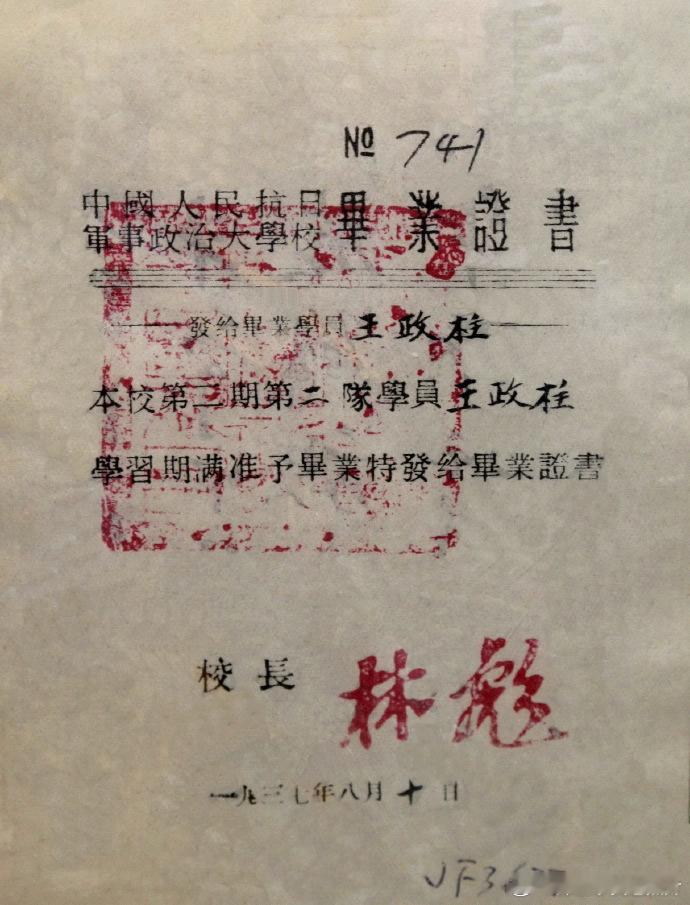 № 741
中國人民抗日
軍事政治大學校
畢業證書
發给畢業學員王政柱
本校第二期第二隊學員王政柱
學習期满准予畢業特發给畢業證書
校長 林彪
一九三七年八月十日